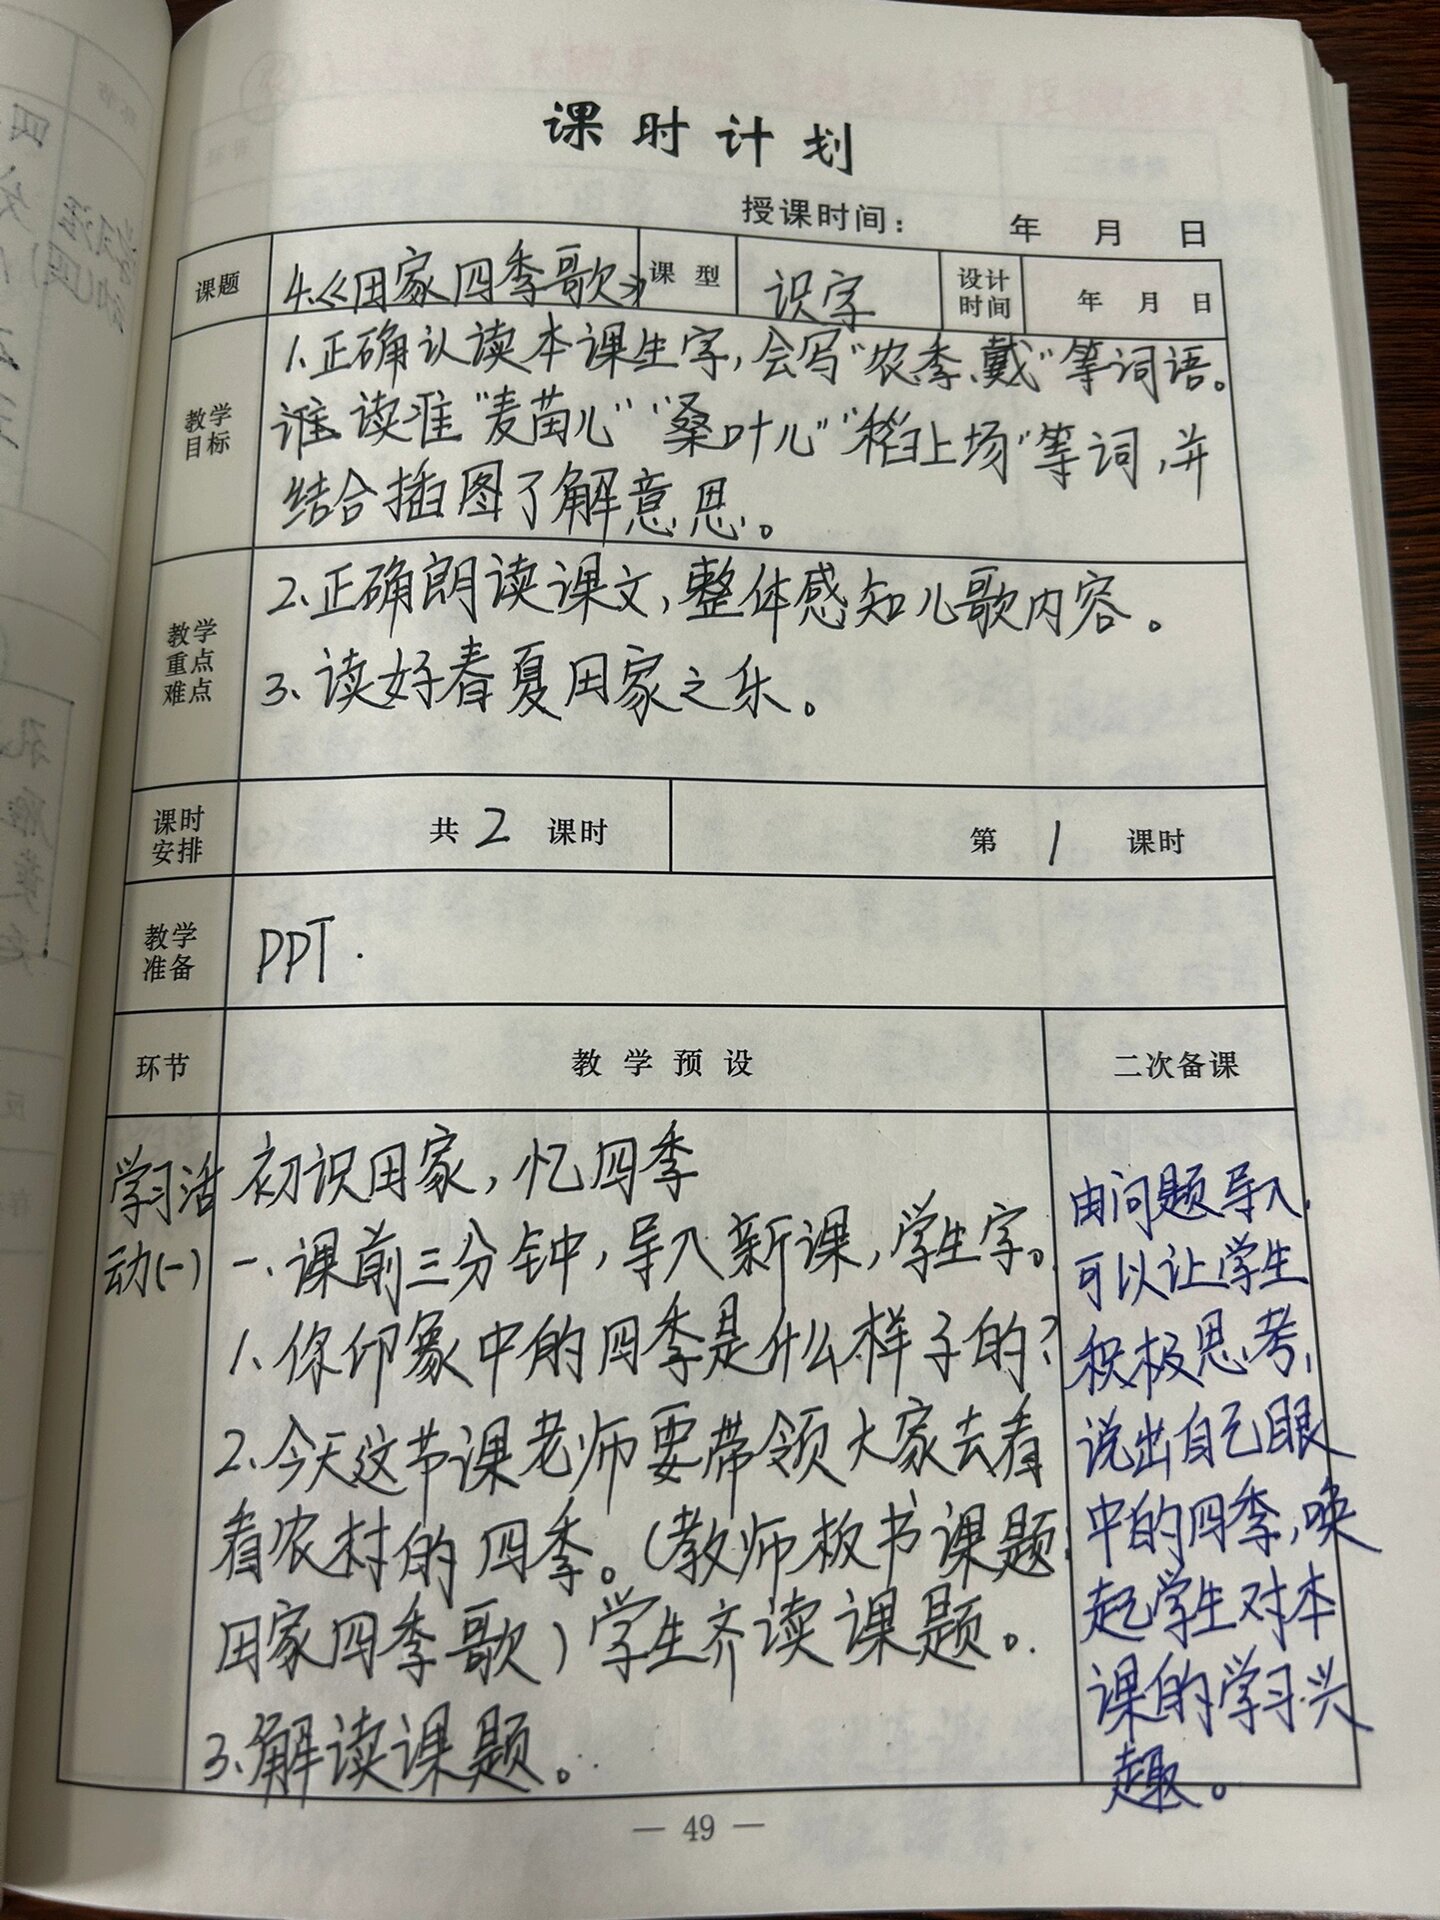 课时计划
授课时间： 年 月 日
课题 4.《田家四季歌》 课型 识字 设计时间 年 月 日
教学目标
1.正确认读本课生字，会写“农、季、戴”等词语。
读准“麦苗儿”“桑叶儿”“稻上场”等词，并
结合插图了解意思。
教学重点难点
2.正确朗读课文，整体感知儿歌内容。
3.读好春夏田家之乐。
课时安排 共 2 课时 第 1 课时
教学准备 PPT.
环节 教学预设 二次备课
学习活
动(一)
初识田家，忆四季
一、课前三分钟，导入新课，学生字。
1、你印象中的四季是什么样子的？
2、今天这节课老师要带领大家去看
看农村的四季。（教师板书课题：
田家四季歌）学生齐读课题。
3、解读课题。
由问题导入，
可以让学生
积极思考，
说出自己眼
中的四季，唤
起学生对本
课的学习兴
趣。
— 49 —